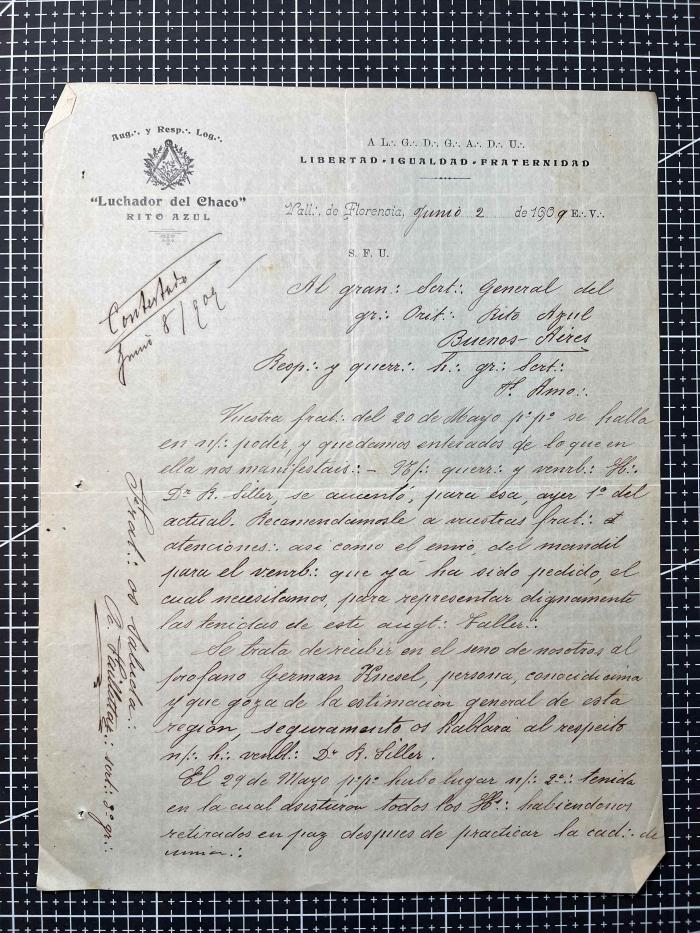 Aug.·. y Resp.·. Log.·.
"Luchador del Chaco"
RITO AZUL
A L.·. G.·. D.·. G.·. A.·. D.·. U.·.
LIBERTAD - IGUALDAD - FRATERNIDAD
Vall.·. de Florencia, Junio 2 de 1909 E.·. V.·.
S. F. U.
Contestado
Junio 8/909
Al gran.·. Sert.·. General del
gr.·. Orit.·. Rito Azul
Buenos-Aires
Resp.·. y querr.·. h.·. gr.·. Sert.·.
Vuestra frat.·. del 20 de Mayo p.·. p.º se halla
en n/.·. poder, y quedamos enterados de lo que en
ella nos manifestais.·. - N/.·. querr.·. y venrb.·. H.·.
Dr R. Siller, se aucentó, para esa, ayer 1º del
actual. Recomendamosle a vuestras frat.·.
atenciones.·. asi como el envio, del mandil
para el venrb.·. que ya ha sido pedido, el
cual necesitamos, para representar dignamente
las tenidas de este augt.·. Taller.·.
Se trata de recibir en el seno de nosotros al
profano German Knesel, persona, conocidicima
y que goza de la estimación general de esta
region, seguramento os hablará al respeito
n/.·. h.·. venbl.·. Dr R. Siller.
El 29 de Mayo p.·. p.º hubo lugar n/.·. 2ª.·. tenida
en la cual asistieron todos los Hs.·. habiendonos
retirados en paz despues de practicar la cad.·. de
union.·.
Frat.·. os Saluda.·.
sert.·. 3º gr.·.